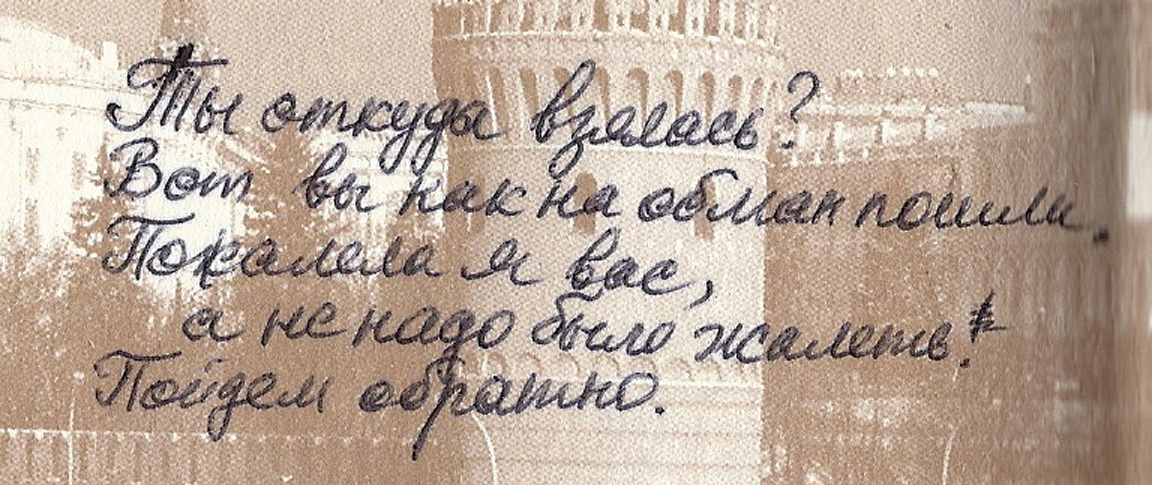 Ты откуда взялась?
Вот вы как на обман пошли.
Пожалела я вас,
а не надо было жалеть!
Пойдем обратно.